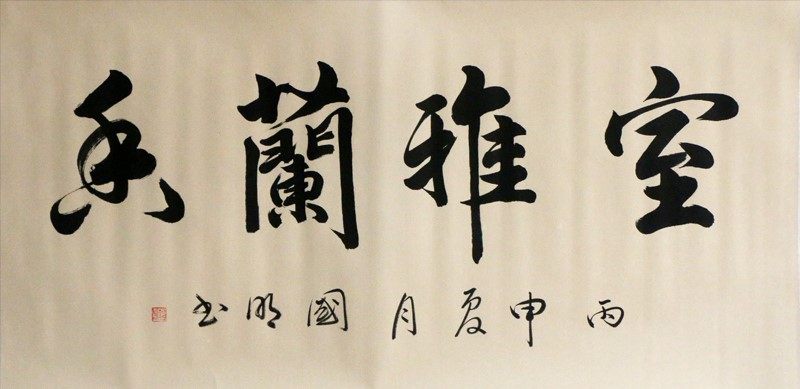 室雅蘭香
丙申夏月國明书